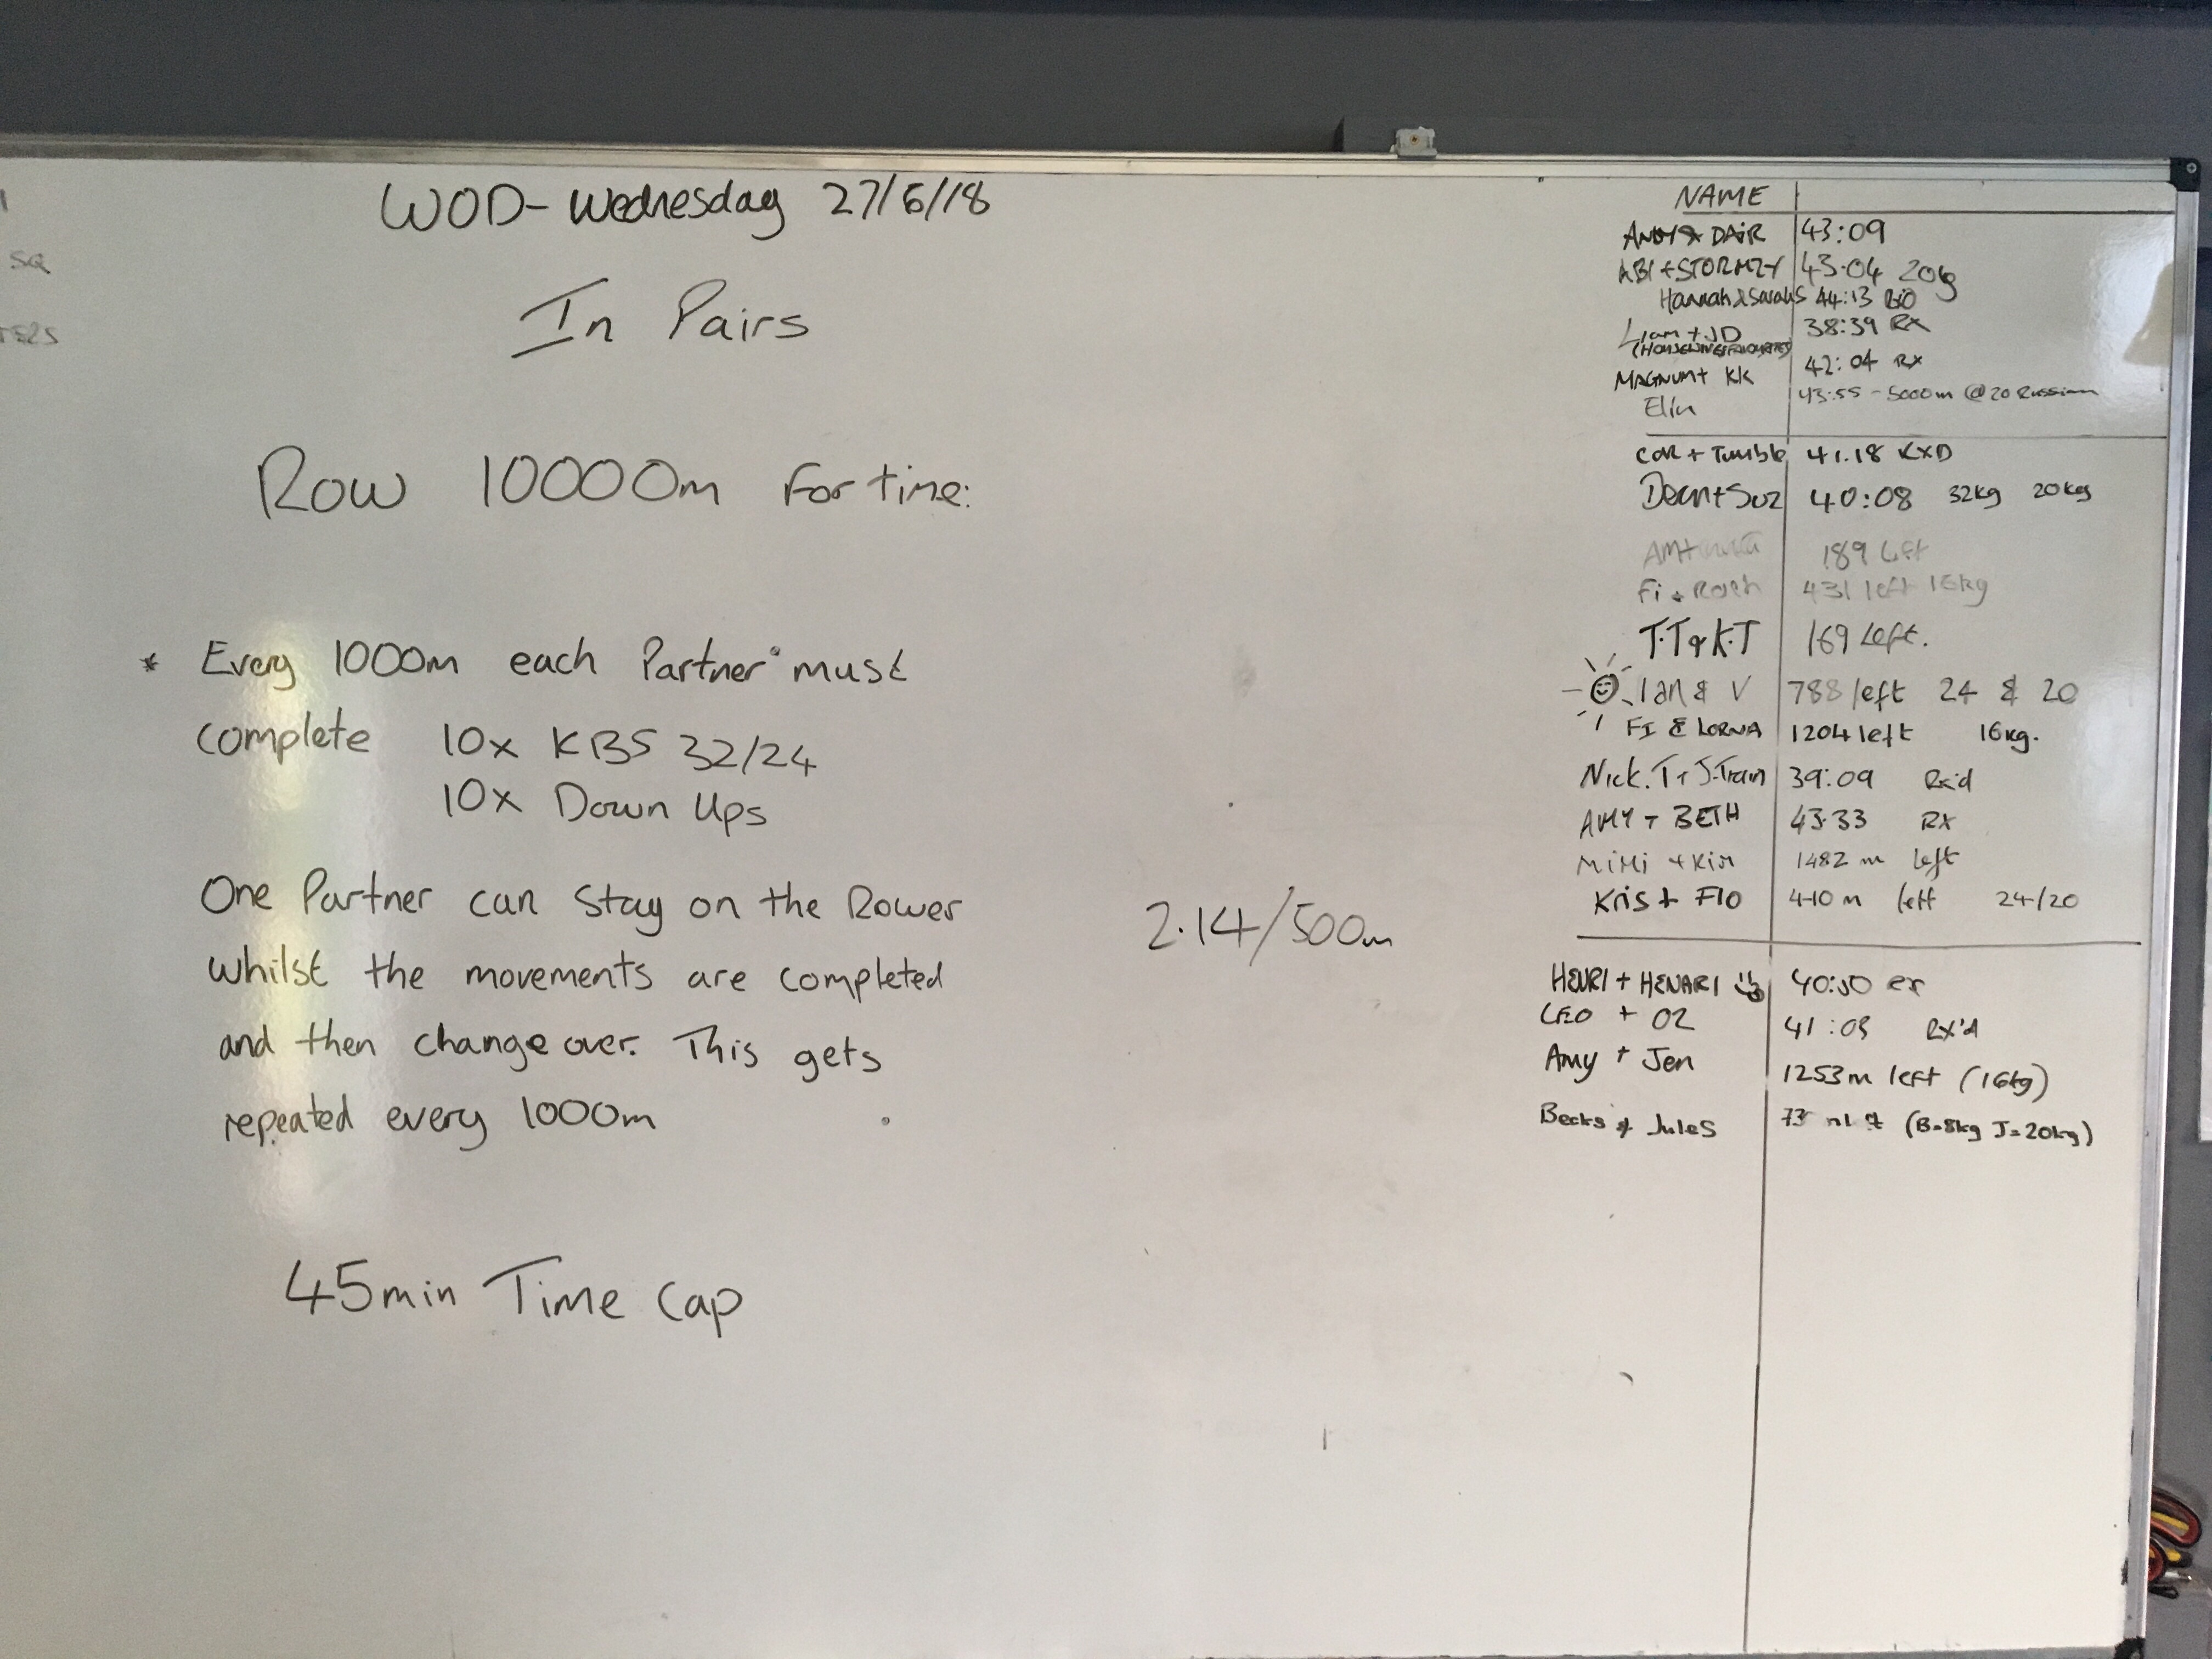 SQ
WOD - Wednesday 27/6/18
In Pairs
Row 10000m for time:
* Every 1000m each Partner must
complete 10x KBS 32/24
10x Down Ups
One Partner can stay on the Rower
whilst the movements are completed
and then change over. This gets
repeated every 1000m
45min Time Cap
2.14/500m
NAME
DAIR 43:09
ABI + STORMZY 43.04 20kg
Hannah & Sarah S 44:13
Liam + JD 38:39 RX
MAGNUM + KK 42:04 RX
Elin 43:55 - 5000m @ 20 Russian
+ Tumble 41.18
Dean + Suz 40:08 32kg 20kg
189 left
Fi + 431 left 16kg
T.T & K.T 169 Left.
Ian & V 788 left 24 & 20
FI & LORNA 1204 left 16kg.
Nick.T + J.Train 39:09 Rx'd
AMY + BETH 43.33 RX
MiMi + Kim 1482 m left
Kris + Flo 410 m left 24/20
HENRI + HENARI
LEO + OZ Rx'd
Amy + Jen 1253m left (16kg)
Becks & Jules 73 (B=8kg J=20kg)